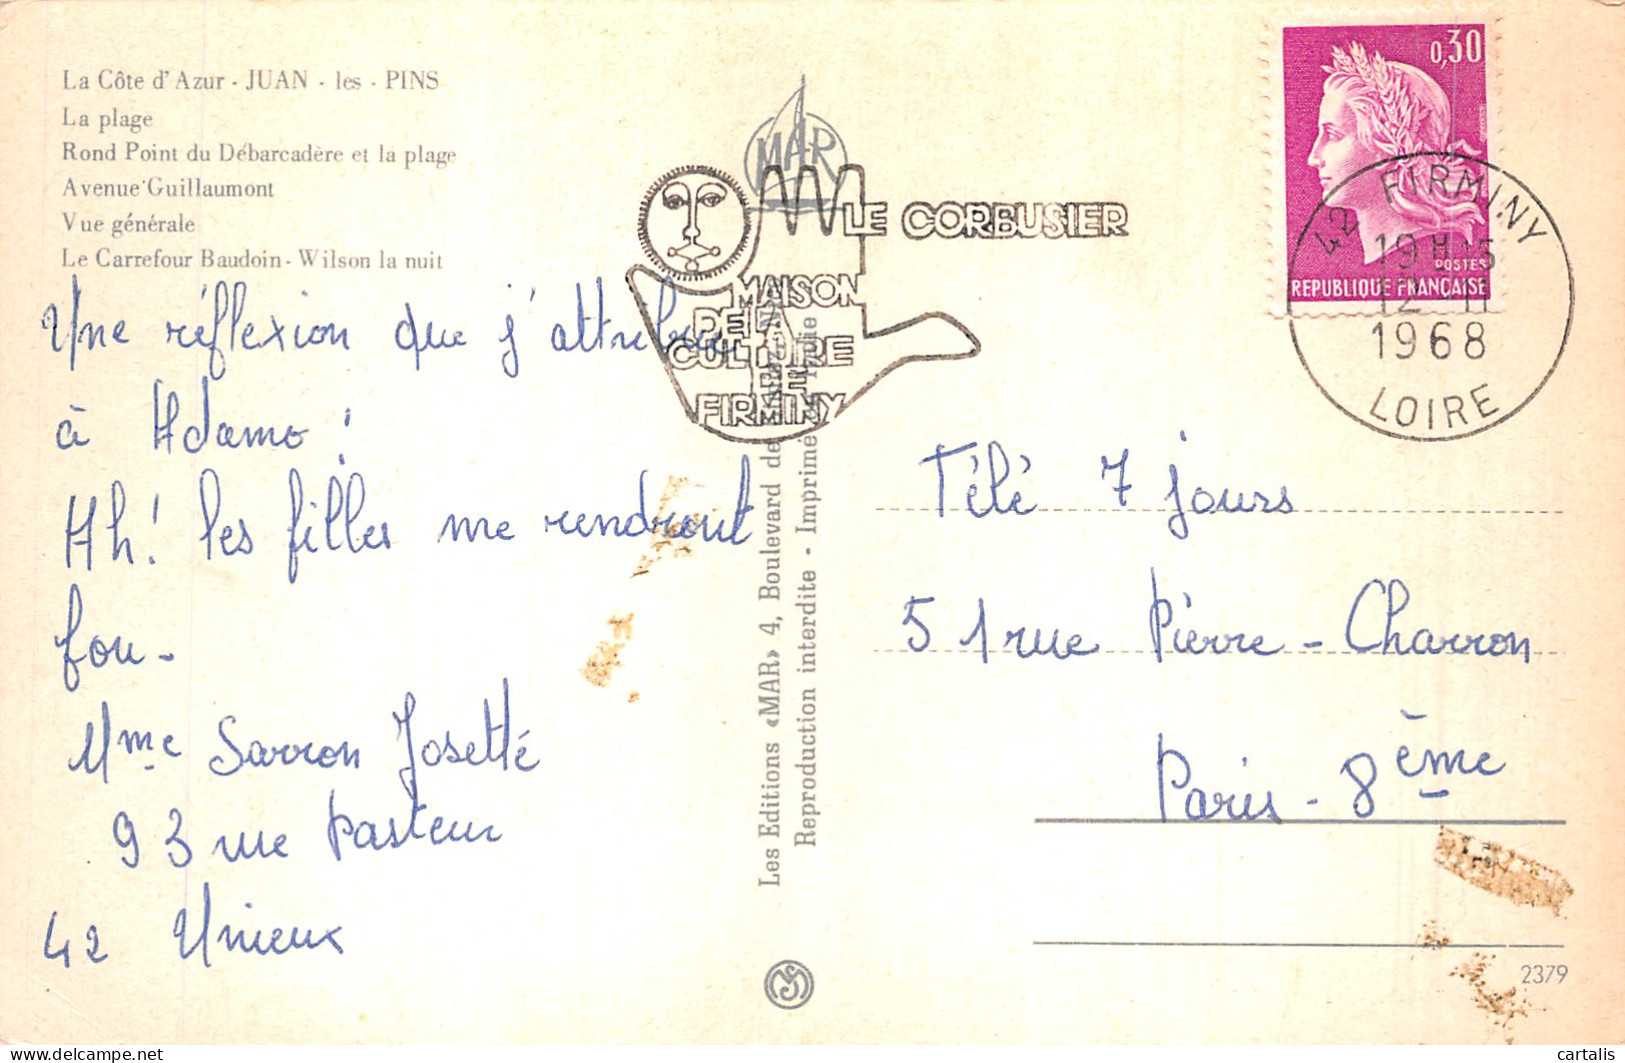 La Côte d'Azur - JUAN - les - PINS
La plage
Rond Point du Débarcadère et la plage
Avenue Guillaumont
Vue générale
Le Carrefour Baudoin - Wilson la nuit
Une réflexion que j'attribue
à Adamo :
Ah! les filles me rendront
fou -
Mme Sarron Josetté
93 rue Pasteur
42 Unieux
MAR
LE CORBUSIER
MAISON
DE LA
CULTURE
DE
FIRMINY
Les Editions «MAR» 4, Boulevard de
Reproduction interdite - Imprimé
0,30
POSTES
REPUBLIQUE FRANÇAISE
42 FIRMINY
19 H 15
12 - 11
1968
LOIRE
Télé 7 jours
5 1 rue Pierre - Charron
Paris - 8ème
2379
delcampe.net
cartalis